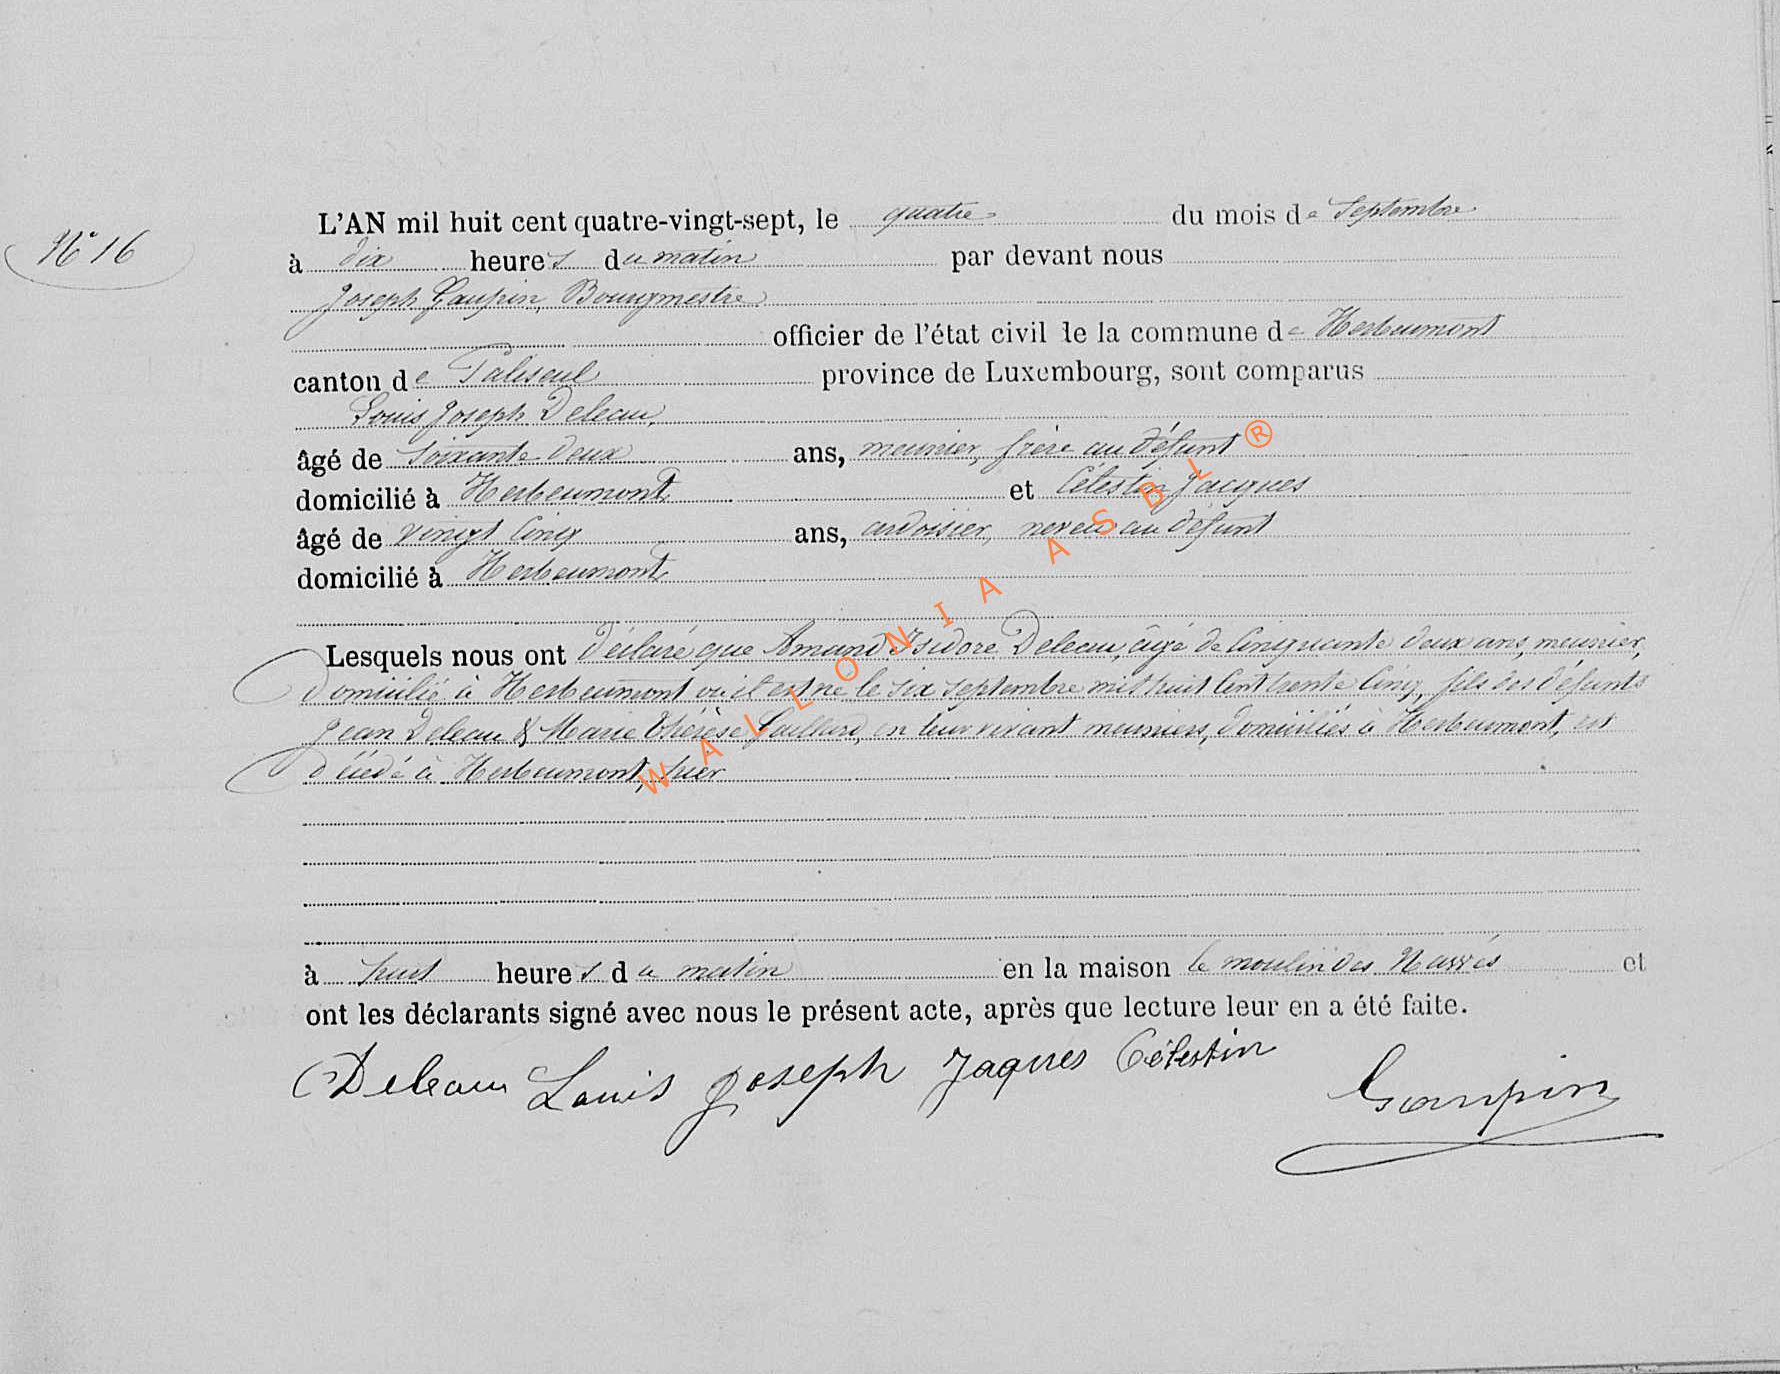 N° 16
L'AN mil huit cent quatre-vingt-sept, le quatre du mois de Septembre
à dix heures du matin par devant nous
Joseph Gaupin, Bourgmestre
officier de l'état civil de la commune de Herbeumont
canton de Paliseul province de Luxembourg, sont comparus
Louis Joseph Deleau,
âgé de soixante deux ans, meunier, frère au défunt
domicilié à Herbeumont et Célestin Jacques
âgé de vingt cinq ans, ardoisier, neveu au défunt
domicilié à Herbeumont
Lesquels nous ont déclaré que Amand Isidore Deleau, âgé de cinquante deux ans, meunier,
domicilié à Herbeumont où il est né le six septembre mil huit cent trente cinq, fils des défunts
Jean Deleau & Marie Thérèse Gaillard, en leur vivant meuniers, domiciliés à Herbeumont, est
décédé à Herbeumont, hier
à huit heures du matin en la maison le moulin des Nawés et
ont les déclarants signé avec nous le présent acte, après que lecture leur en a été faite.
Deleau Louis Joseph Jaques Célestin
Gaupin
WALLONIA ASBL ®